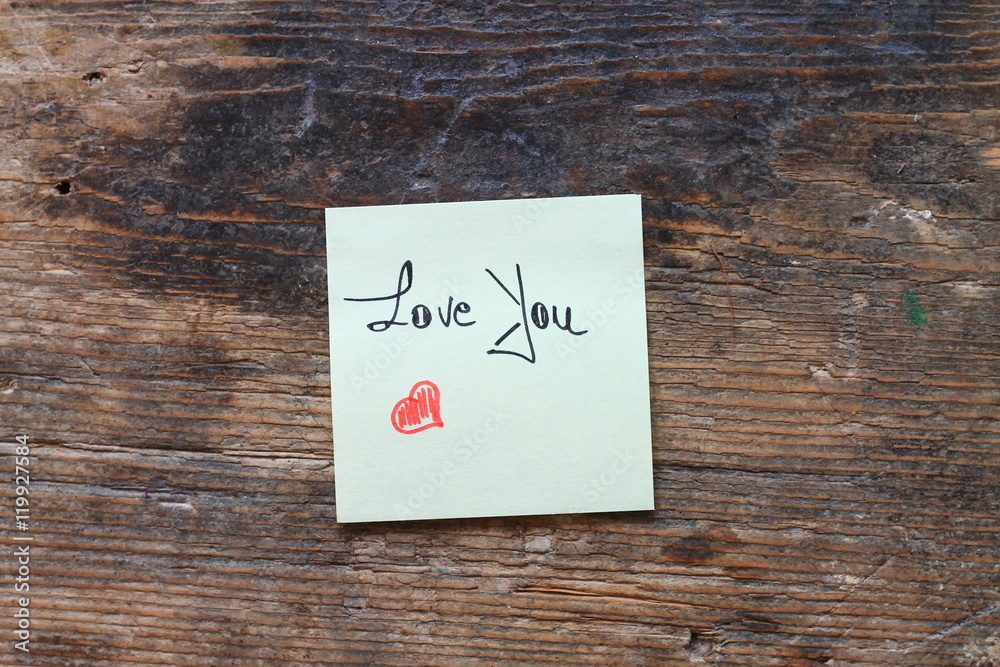 Love You
Adobe Stock | #119927584